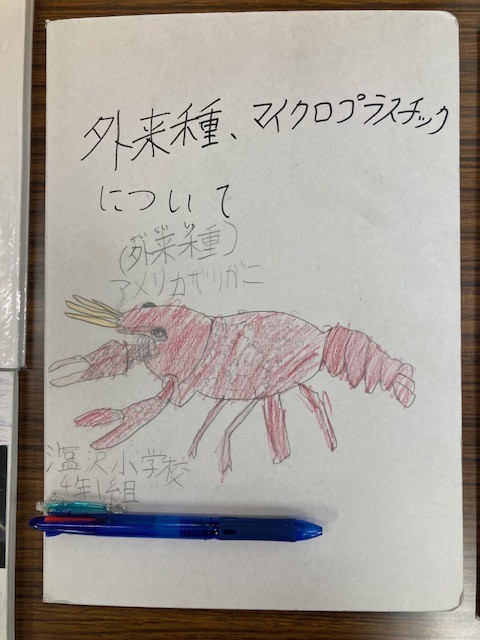 外来種、マイクロプラスチック
について
(外来種)
がいらいしゅ
アメリカザリガニ
塩沢小学校
4年1組